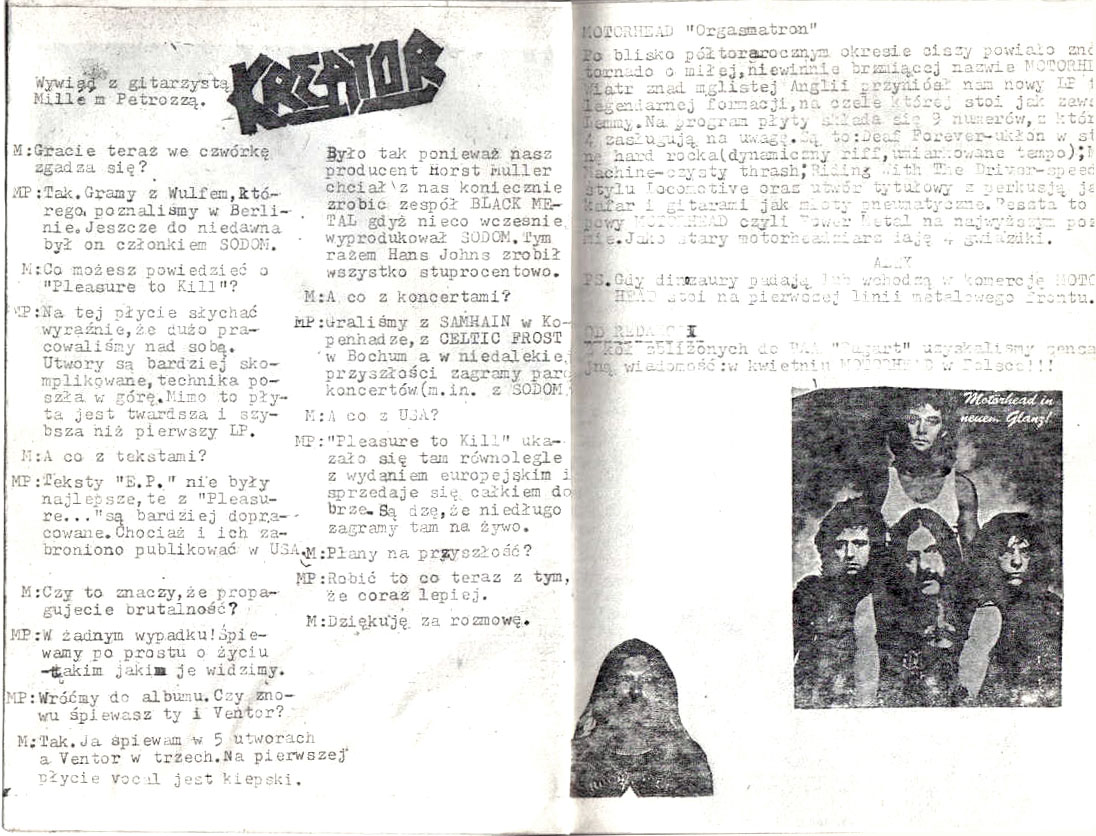 Wywiad z gitarzystą
Mille m Petrozzą.
KREATOR
M:Gracie teraz we czwórkę
zgadza się?
MP:Tak.Gramy z Wulfem,któ-
rego poznaliśmy w Berli-
nie.Jeszcze do niedawna
był on członkiem SODOM.
M:Co możesz powiedzieć o
"Pleasure to Kill"?
MP:Na tej płycie słychać
wyraźnie,że dużo pra-
cowaliśmy nad sobą.
Utwory są bardziej sko-
mplikowane,technika po-
szła w górę.Mimo to pły-
ta jest twardsza i szy-
bsza niż pierwszy LP.
M:A co z tekstami?
MP:Teksty "E.P." nie były
najlepsze,te z "Pleasu-
re..."są bardziej dopra-
cowane.Chociaż i ich za-
broniono publikować w USA.
M:Czy to znaczy,że propa-
gujecie brutalność?
MP:W żadnym wypadku!Śpie-
wamy po prostu o życiu
-takim jakim je widzimy.
MP:Wróćmy do albumu.Czy zno-
wu śpiewasz ty i Ventor?
M:Tak.Ja śpiewam w 5 utworach
a Ventor w trzech.Na pierwszej
płycie vocal jest kiepski.
Było tak ponieważ nasz
producent Horst Muller
chciał z nas koniecznie
zrobić zespół BLACK ME-
TAL gdyż nieco wcześnie
wyprodukował SODOM.Tym
razem Hans Johns zrobił
wszystko stuprocentowo.
M:A co z koncertami?
MP:Graliśmy z SAMHAIN w Ko-
penhadze,z CELTIC FROST
w Bochum a w niedalekiej
przyszłości zagramy parę
koncertów(m.in. z SODOM
M:A co z USA?
MP:"Pleasure to Kill" uka-
zało się tam równolegle
z wydaniem europejskim i
sprzedaje się całkiem do
brze.Są dzę,że niedługo
zagramy tam na żywo.
M:Plany na przyszłość?
MP:Robić to co teraz z tym,
że coraz lepiej.
M:Dziękuję za rozmowę.
MOTORHEAD "Orgasmatron"
Po blisko półtorarocznym okresie ciszy powiało
tornado o miłej,niewinnie brzmiącej nazwie
Wiatr znad mglistej Anglii przyniósł nam nowy LP
legendarnej formacji,na czele której stoi jak
Lemmy.Na program płyty składa się 9 numerów,z
4 zasługują na uwagę.Są to:Deaf Forever-ukłon w
hard rocka(dynamiczny riff,umiarkowane tempo);
Machine-czysty thrash;Riding With The Driver-speed
stylu Locomotive oraz utwór tytułowy z perkusją
kafar i gitarami jak młoty pneumatyczne.Reszta to
MOTORHEAD czyli Power Metal na najwyższym
Jako stary motorheadziarz daję 4 gwiazdki.
PS.Gdy dinozaury padają lub wchodzą w komercję
HEAD stoi na pierwszej linii metalowego frontu.
OD REDAKCJI
kół zbliżonych do uzyskaliśmy
wiadomość:w kwietniu MOTORHEAD w Polsce!!!
Motorhead in
neuem Glanz!